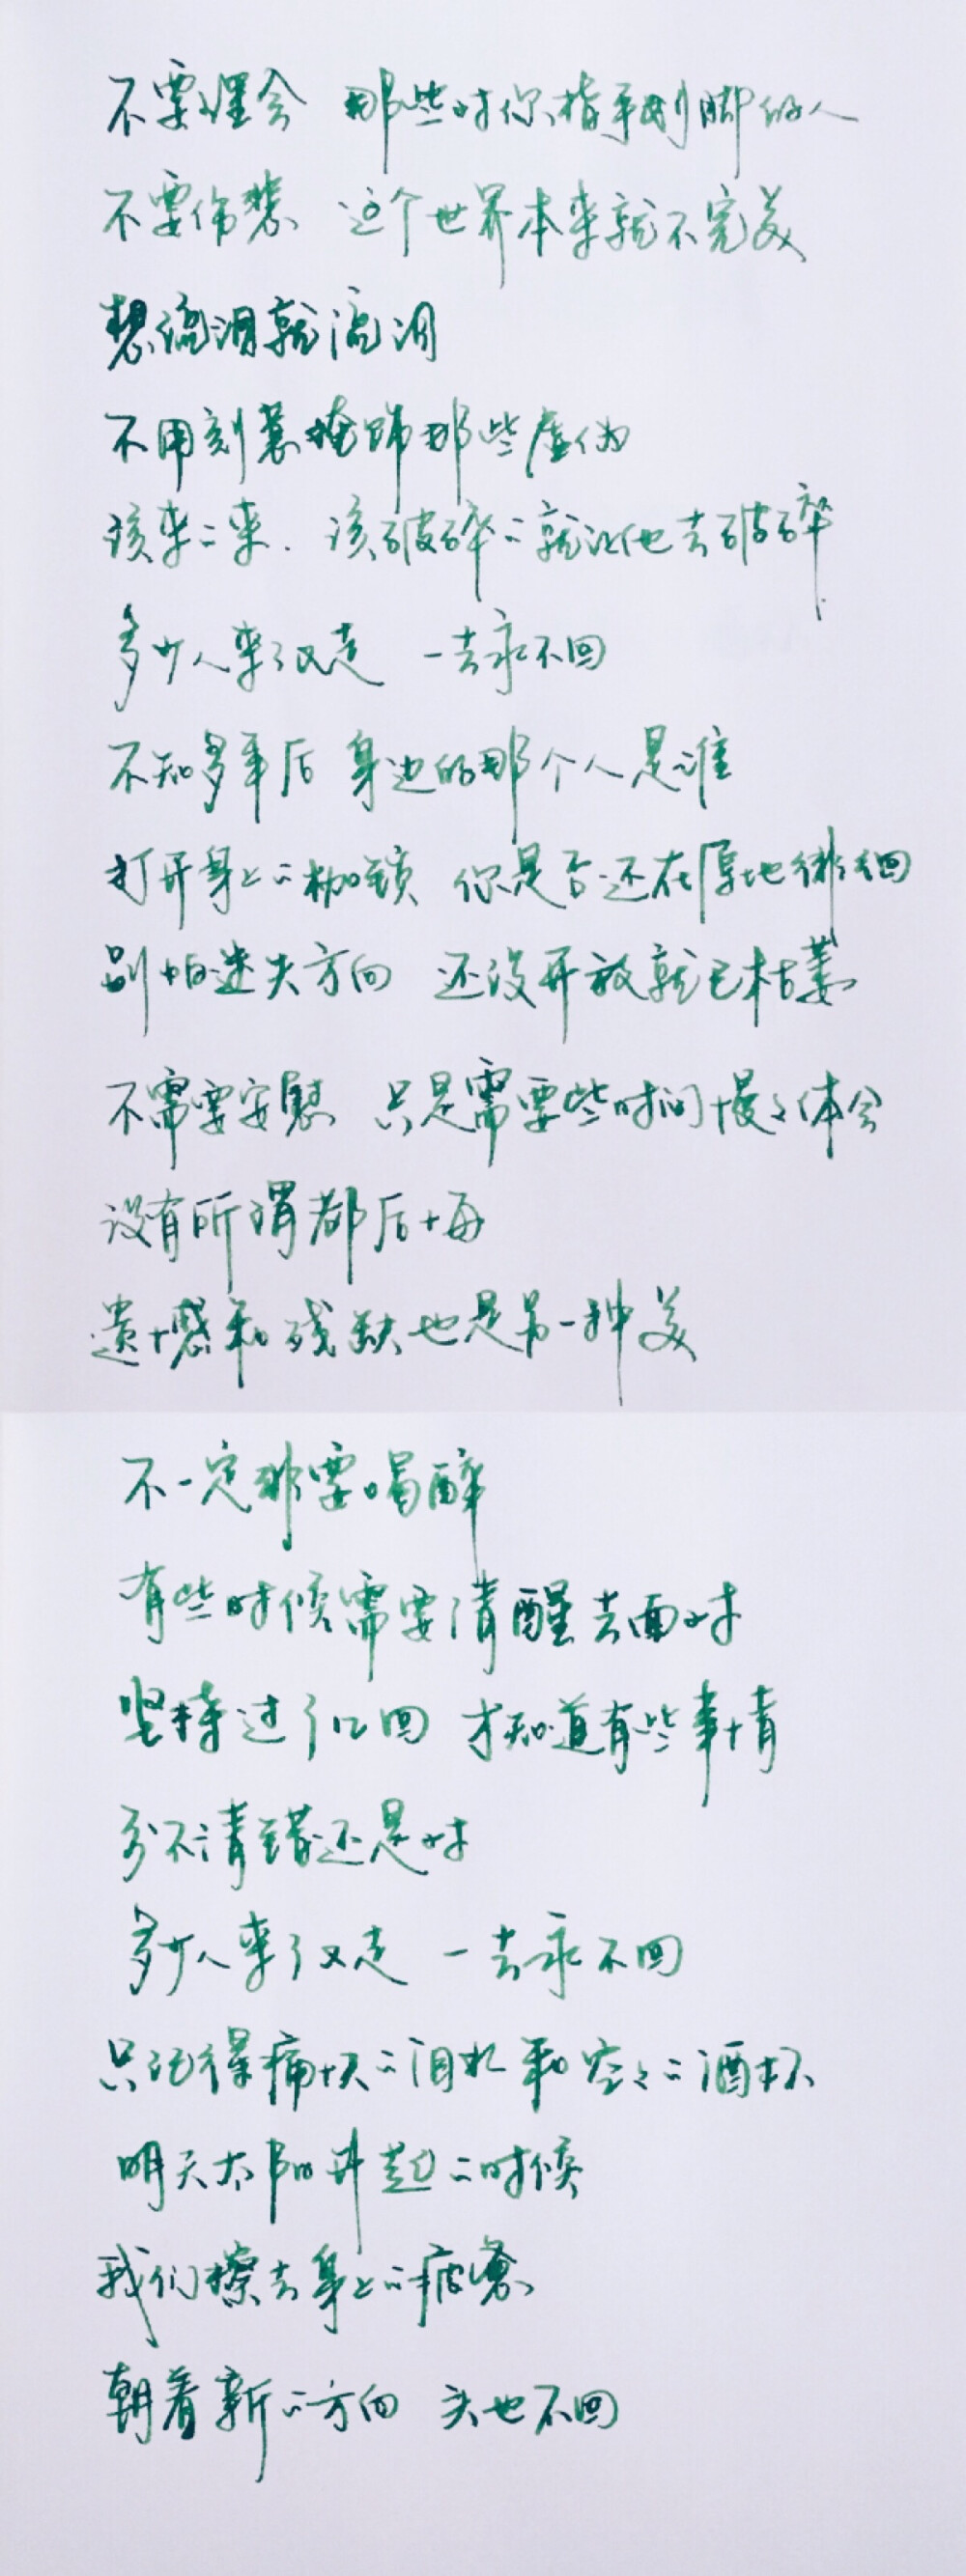 不要理会 那些对你指手划脚的人
不要伤悲 这个世界本来就不完美
想流泪就流泪
不用刻意掩饰那些虚伪
该来的来. 该破碎的就让他去破碎
多少人来了又走 一去永不回
不知多年后 身边的那个人是谁
打开身上的枷锁 你是否还在原地徘徊
别怕迷失方向 还没开放就已枯萎
不需要安慰 只是需要些时间慢慢体会
没有所谓都后悔
遗憾和残缺也是另一种美
不一定非要喝醉
有些时候需要清醒去面对
坚持过了几回 才知道有些事情
分不清错还是对
多少人来了又走 一去永不回
只记得痛快的泪水和空空的酒杯
明天太阳升起的时候
我们擦去身上的疲惫
朝着新的方向 头也不回